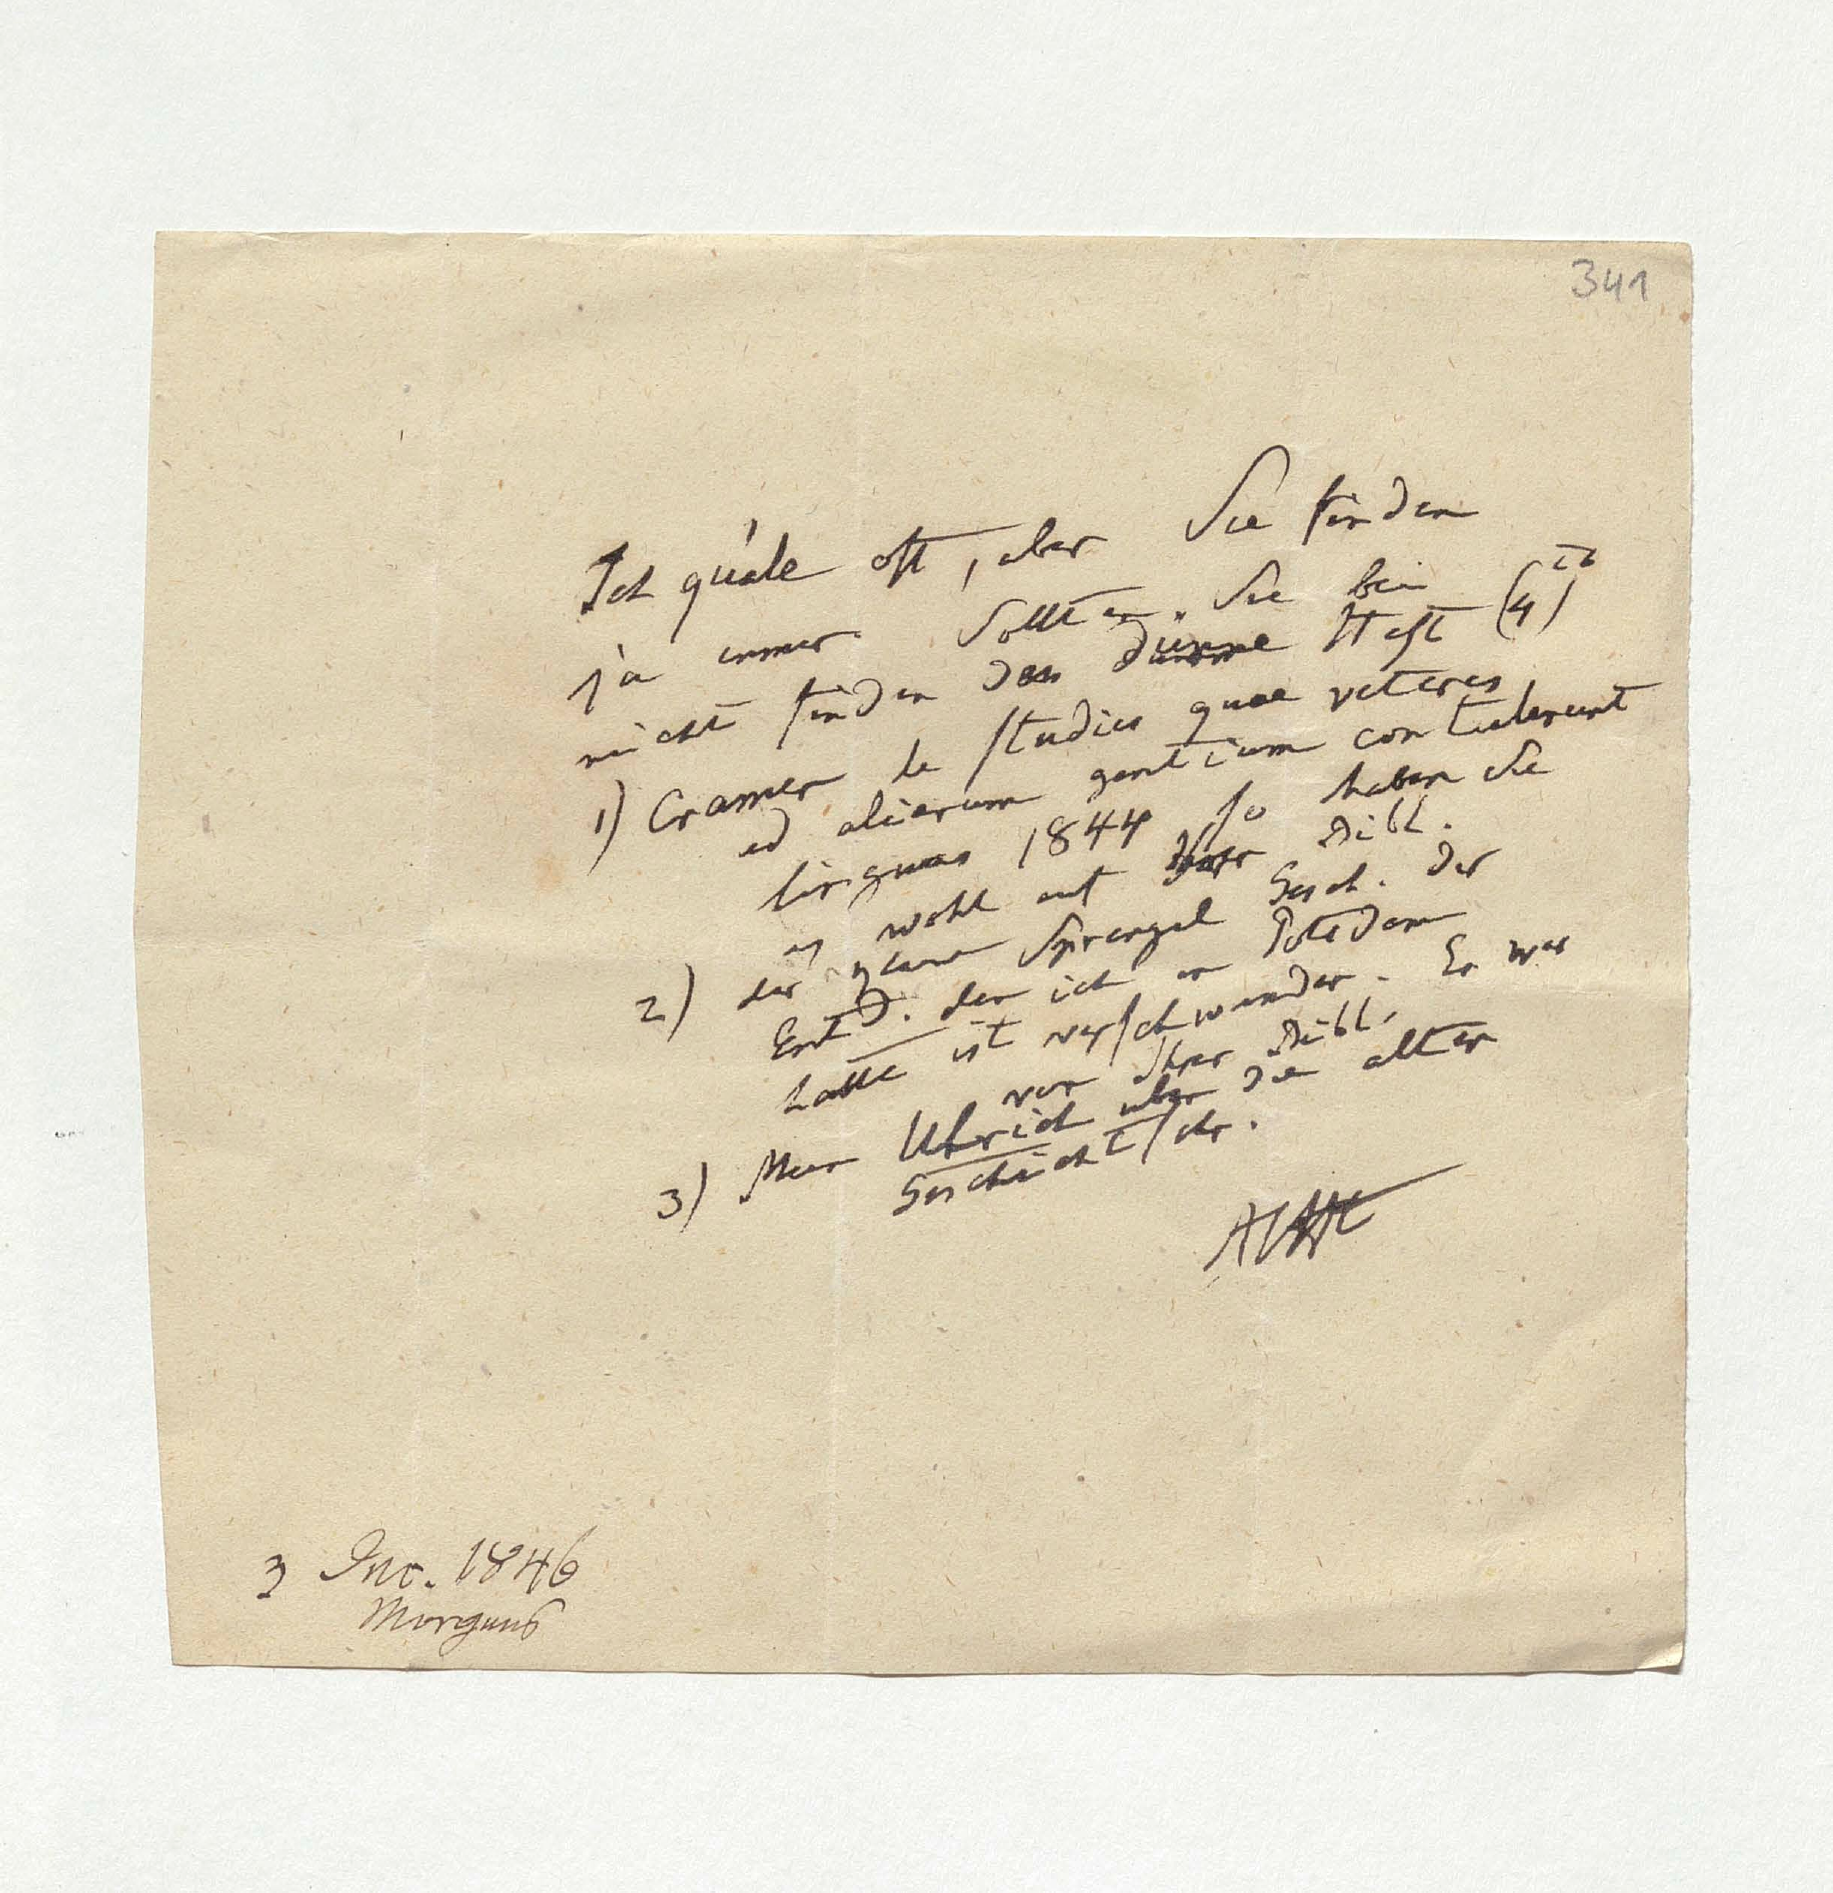 341
Ich quäle oft, aber Sie finden
ja immer. Sollten Sie bei
nicht finden das dünne Heft (4)
1) Cramer de studiis quae veteres
ad aliarum gentium contulerunt
linguas 1844 so haben Sie
es wohl auf Ihrer Bibl.
2) der Sprengel Gesch. der
Entd. den ich in Potsdam
hatte ist verschwunden. Er war
von Ihrer Bibl.
3) Mein Ulrich über die alten
Geschichtschr.
AHt
3 1846
Morgens